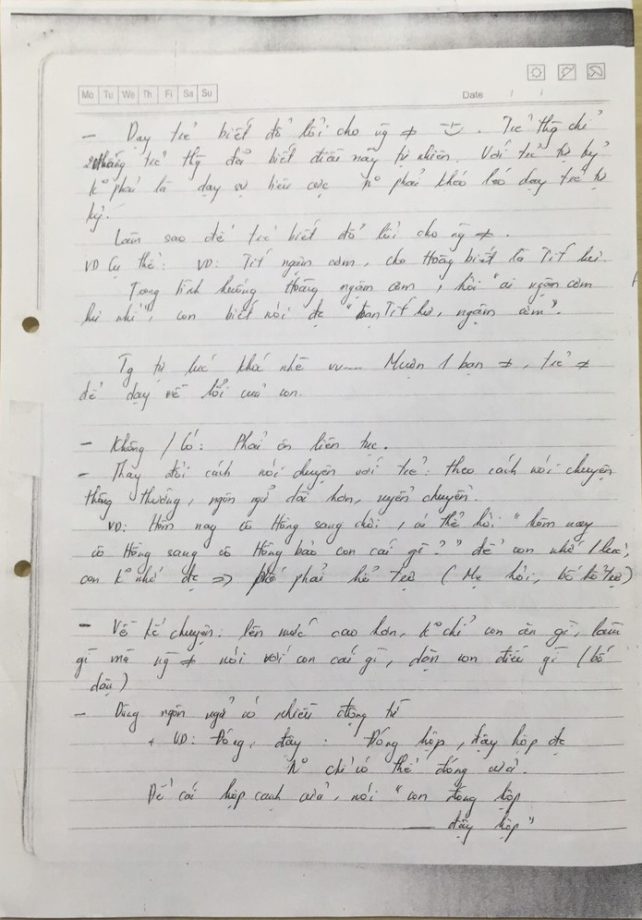 Mo Tu We Th Fi Sa Su
Date / /
- Dạy trẻ biết đổ lỗi cho ng ≠ . Trẻ thg chỉ
tháng trẻ thg đã biết điều này tự nhiên. Với trẻ tự kỷ
k° phải là dạy sự tiêu cực k° phải khéo léo dạy trẻ tự
kỷ.
Làm sao để trẻ biết đổ lỗi cho ng ≠.
VD Cụ thể: VD: Tít ngậm cơm, cho Hoàng biết là Tít hư.
Trong tình huống Hoàng ngậm cơm, hỏi "ai ngậm cơm
hư nhỉ", con biết nói đc "bạn Tít hư, ngậm cơm".
Tg tự lúc khóc nhè Mượn 1 bạn ≠, trẻ ≠
để dạy về lỗi của con.
- Không / Có: Phải ôn liên tục.
- Thay đổi cách nói chuyện với trẻ: theo cách nói chuyện
thông thường, ngôn ngữ dài hơn, uyển chuyển.
VD: Hôm nay cô Hồng sang chơi, có thể hỏi "hôm nay
cô Hồng sang cô Hồng bảo con cái gì?" để con nhớ lại,
con k° nhớ đc => phải hỗ trợ (Mẹ hỏi, bố hỗ trợ)
- Về kể chuyện: lên mức cao hơn, k° chỉ con ăn gì, làm
gì mà ng ≠ nói với con cái gì, dặn con điều gì (bố
dặn)
- Dùng ngôn ngữ có nhiều động từ
+ VD: Đóng, đậy: Đóng hộp, đậy hộp đc
k° chỉ có thể đóng cửa.
Để cái hộp cạnh cửa, nói "con đóng hộp
đậy hộp"